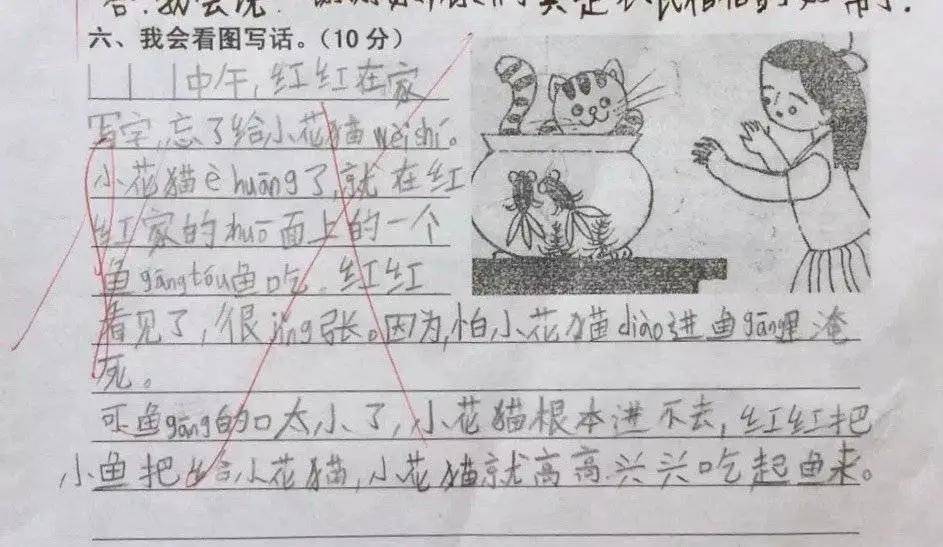 答:我会说:
六、我会看图写话。(10分)
中午,红红在家
写字,忘了给小花猫wèi shí。
小花猫è huāng了,就在红
红家的zhuō面上的一个
鱼gāng tōu鱼吃。红红
看见了,很jǐng张。因为,怕小花猫diào进鱼gāng里淹
死。
可鱼gāng的口太小了,小花猫根本进不去,红红把
小鱼把给小花猫,小花猫就高高兴兴吃起鱼来。